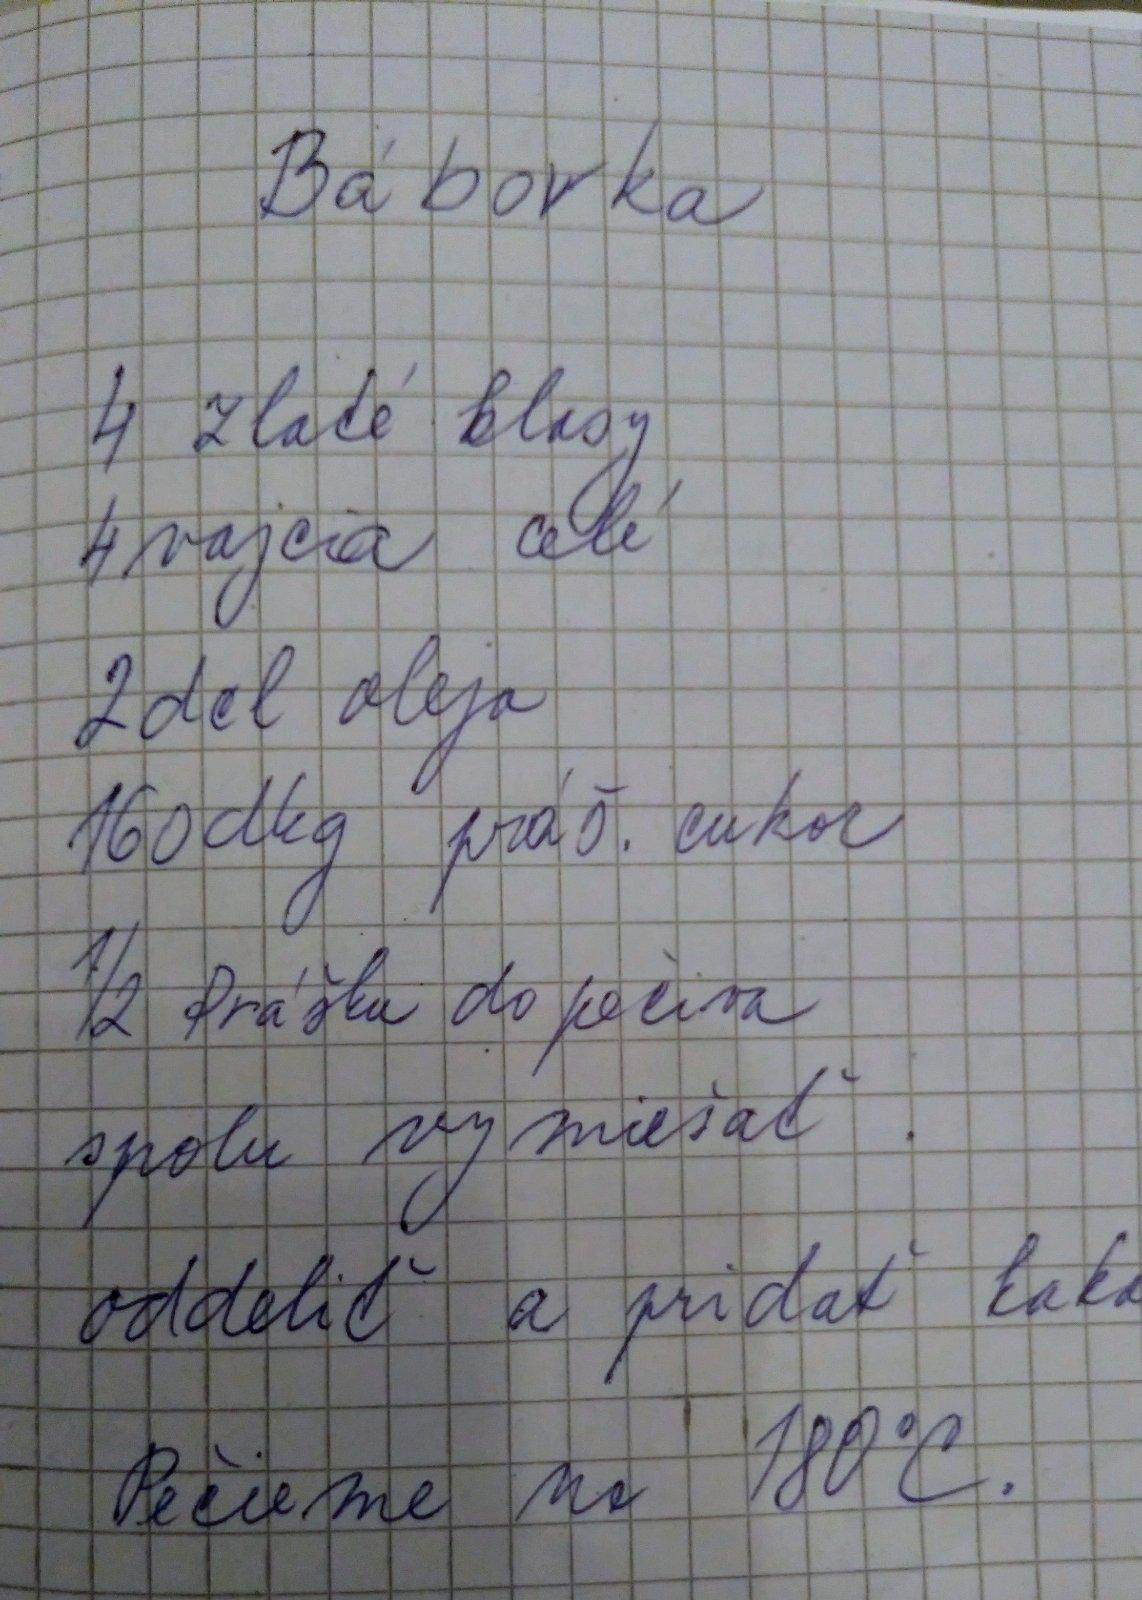 Báborka
4 zlaté klasy
4 vajcia celé
2 dcl oleja
160 dkg práš. cukor
1/2 Prášku do pečiva
spolu vymiešať.
oddeliť a pridať kaka
Pečieme na 180°C.